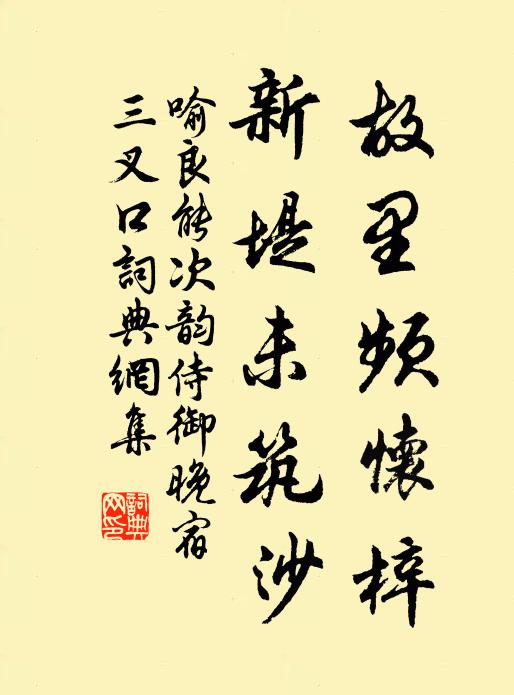 故里頻懷梓
新堤未筑沙
喻良能次韵侍御晚宿
三叉口詞典網集
詞典網印